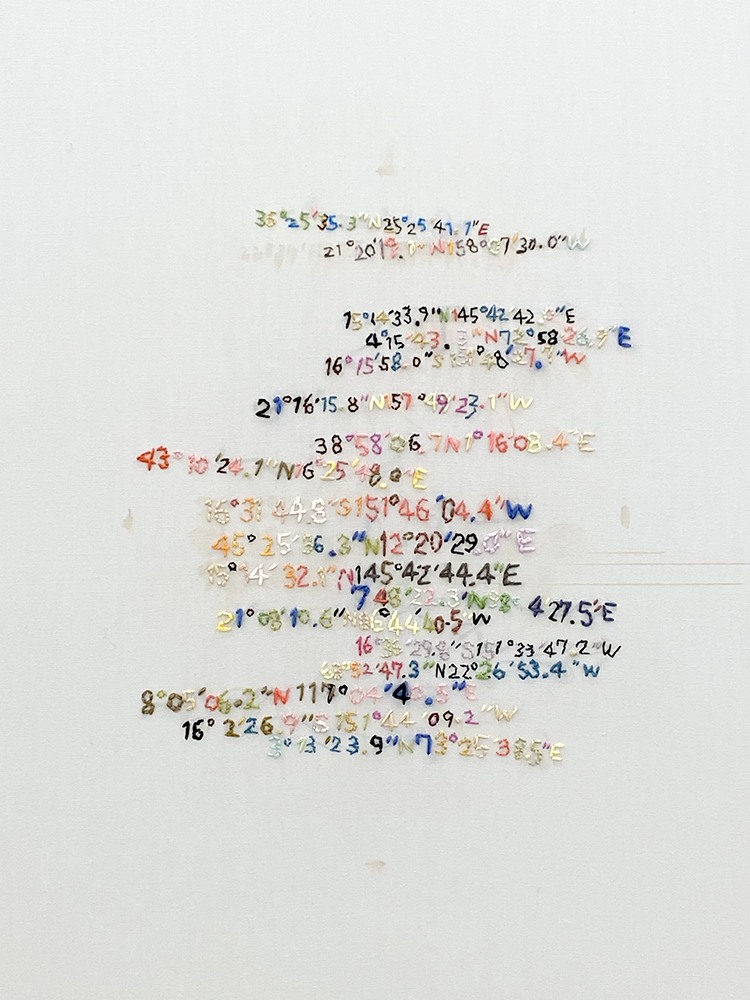 35°25'35.3"N25°25'41.1"E
21°20'19. "N158° 7'30.0"W
15°14'33.9"N145°42'42. "E
4°15'43. "N72°58'26.9"E
16°15'58.0"S151°48'27. "W
21°16'15.8"N157°49'23.1"W
38°58'06.7N1°16'08.4"E
43°10'24.1"N16°25'48.0"E
16°31'44.8"S151°46'04.4"W
45°25'36.3"N12°20'29. "E
15°14'32.1"N145°42'44.4"E
7°48'22.3"N98° 4'27.5"E
21°08'10.6"N 86°44'40.5"W
16°36'29.8"S151°33'47.2"W
63°52'47.3"N22°26'53.4"W
8°05'06.2"N117°04'40.5"E
16° 2'26.9"S151°44'09.2"W
3°13'23.9"N73°25'38.5"E